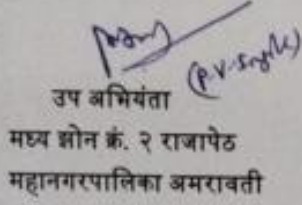 उप अभियंता
मध्य झोन क्रं. २ राजापेठ
महानगरपालिका अमरावती